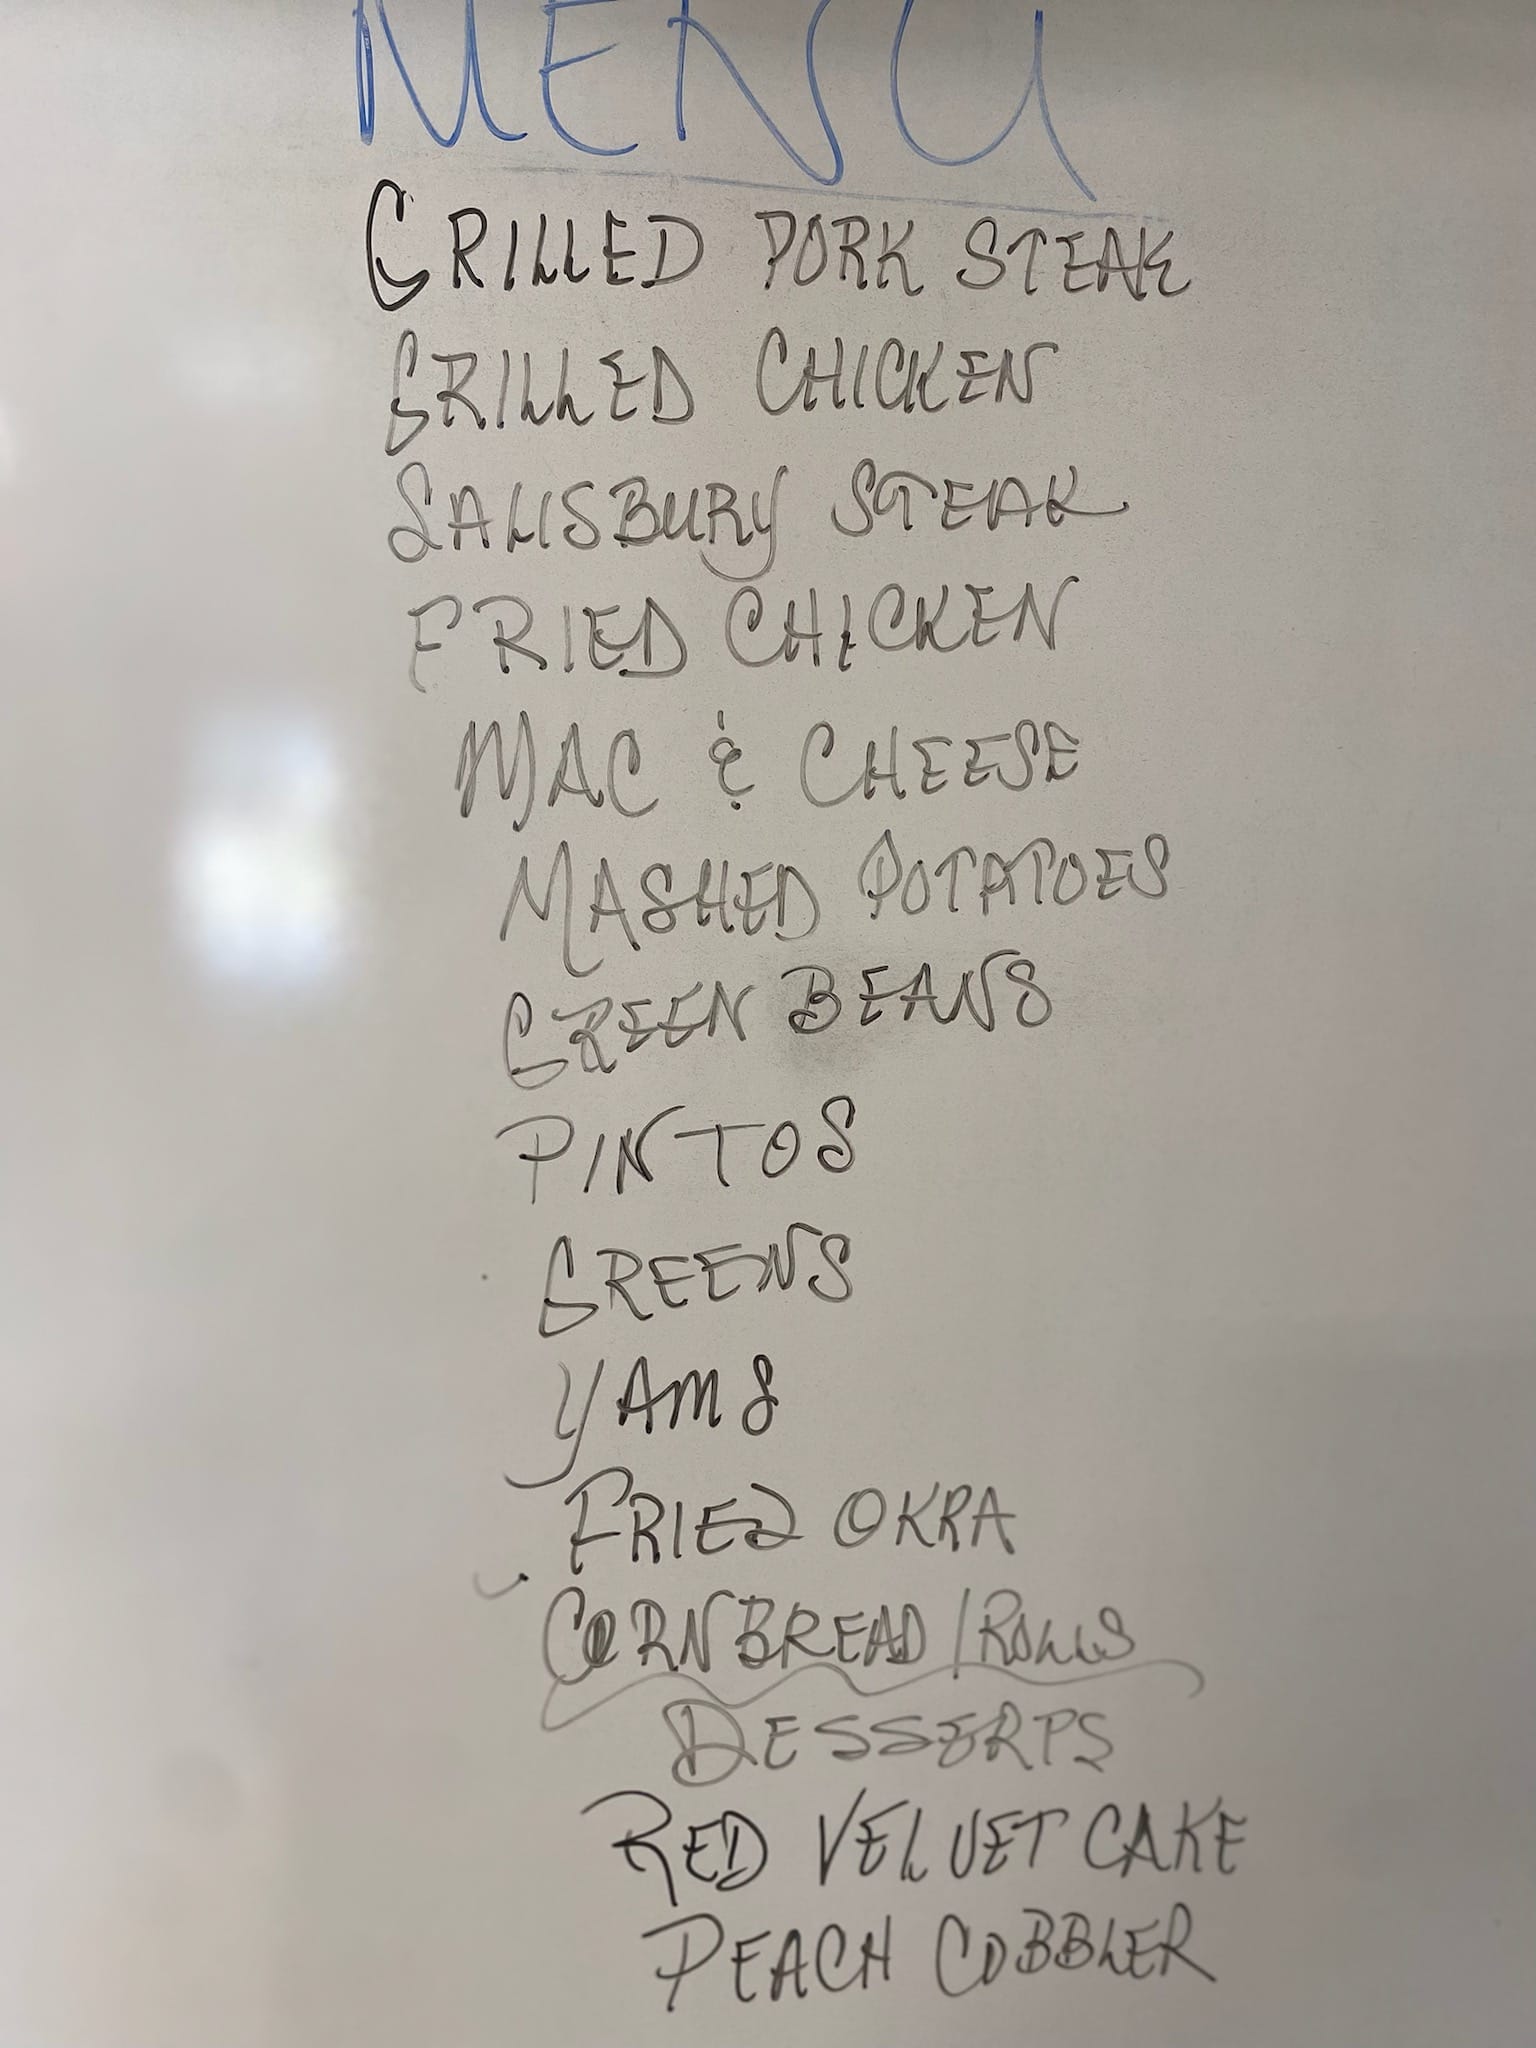 MENU
GRILLED PORK STEAK
GRILLED CHICKEN
SALISBURY STEAK
FRIED CHICKEN
MAC & CHEESE
MASHED POTATOES
GREEN BEANS
PINTOS
GREENS
YAMS
FRIED OKRA
CORNBREAD/ROLLS
DESSERTS
RED VELVET CAKE
PEACH COBBLER